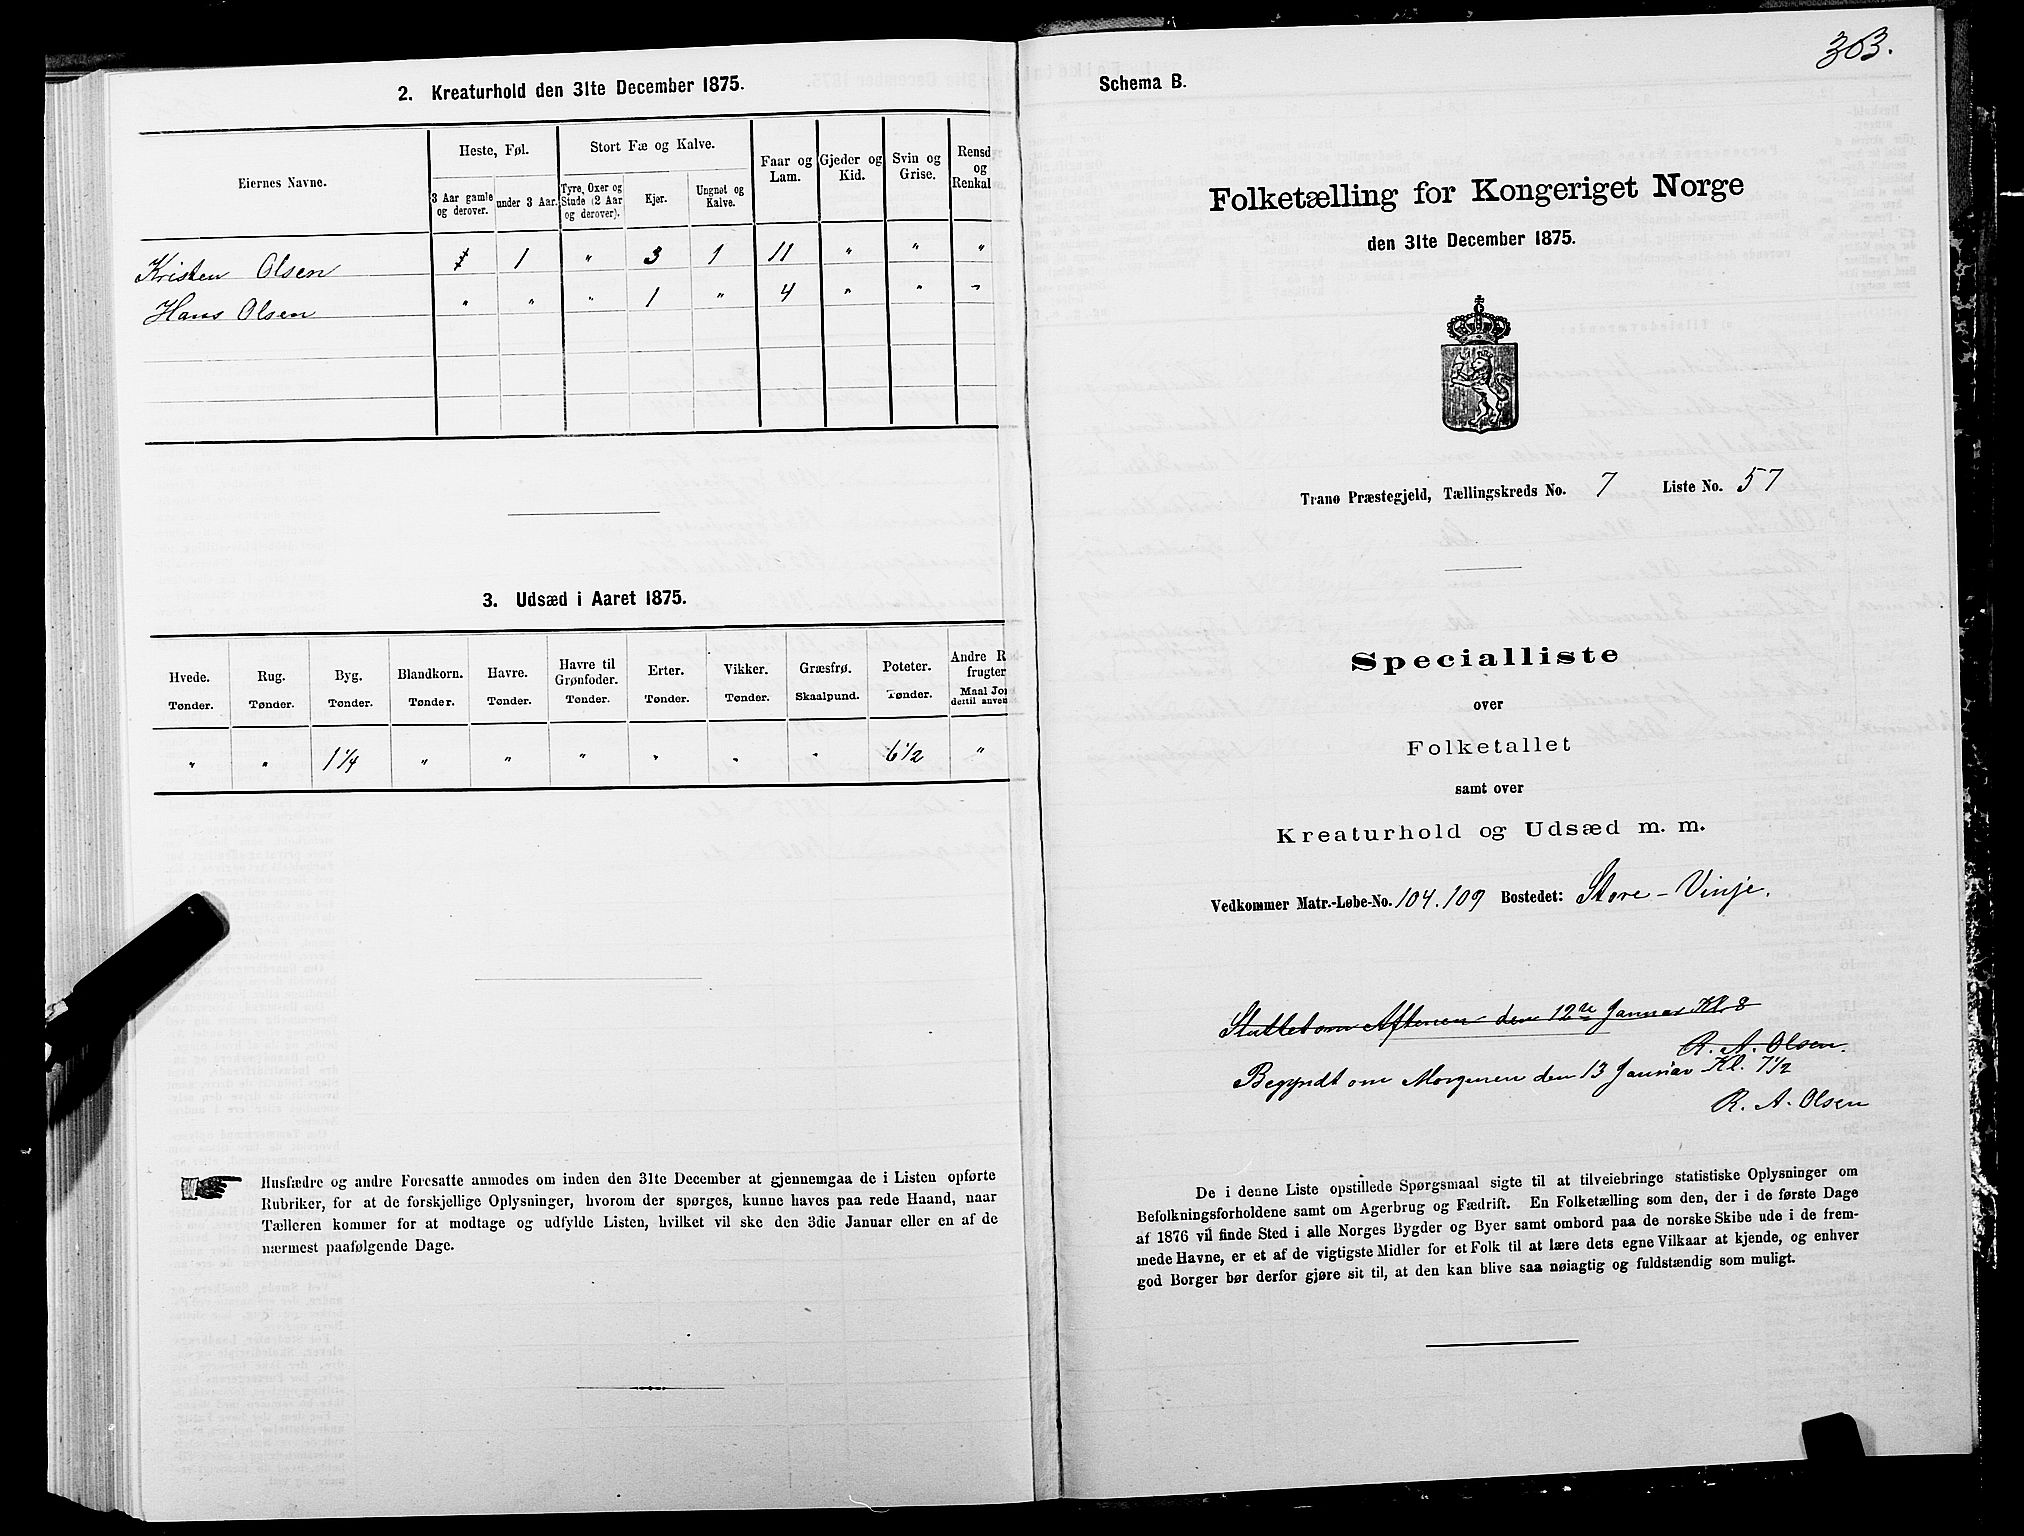 2. Kreaturhold den 31te December 1875.
Eiernes Navne.
Heste, Føl.
Stort Fæ og Kalve.
Faar og Lam.
Gjeder og Kid.
Svin og Grise.
Rensd og Renkal
3 Aar gamle og derover.
under 3 Aar.
Tyre, Oxer og Stude (2 Aar og derover).
Kjør.
Ungnøt og Kalve.
Kristen Olsen 1 " 3 1 11 " " "
Hans Olsen " " " 1 " 4 " " "
3. Udsæd i Aaret 1875.
Hvede. Rug. Byg. Blandkorn. Havre. Havre til Grønfoder. Erter. Vikker. Græsfrø. Poteter. Andre R frugter
Tønder. Tønder. Tønder. Tønder. Tønder. Tønder. Tønder. Tønder. Skaalpund. Tønder. Maal Jor dertil anven
" " 1 1/4 " " " " " " 6 1/2 "
Husfædre og andre Foresatte anmodes om inden den 31te December at gjennemgaa de i Listen opførte
Rubriker, for at de forskjellige Oplysninger, hvorom der spørges, kunne haves paa rede Haand, naar
Tælleren kommer for at modtage og udfylde Listen, hvilket vil ske den 3die Januar eller en af de
nærmest paafølgende Dage.
363.
Schema B.
Folketælling for Kongeriget Norge
den 31te December 1875.
Tranø Præstegjeld, Tællingskreds No. 7 Liste No. 57
Specialliste
over
Folketallet
samt over
Kreaturhold og Udsæd m. m.
Vedkommer Matr.-Løbe-No. 104. 109 Bostedet: Store-Vinje.
Sluttet om Aftenen den 12te Januar Kl. 8
R. A. Olsen.
Begyndt om Morgenen den 13 Januar Kl. 7 1/2
R. A. Olsen
De i denne Liste opstillede Spørgsmaal sigte til at tilveiebringe statistiske Oplysninger om
Befolkningsforholdene samt om Agerbrug og Fædrift. En Folketælling som den, der i de første Dage
af 1876 vil finde Sted i alle Norges Bygder og Byer samt ombord paa de norske Skibe ude i de frem-
mede Havne, er et af de vigtigste Midler for et Folk til at lære dets egne Vilkaar at kjende, og enhver
god Borger bør derfor gjøre sit til, at den kan blive saa nøiagtig og fuldstændig som muligt.